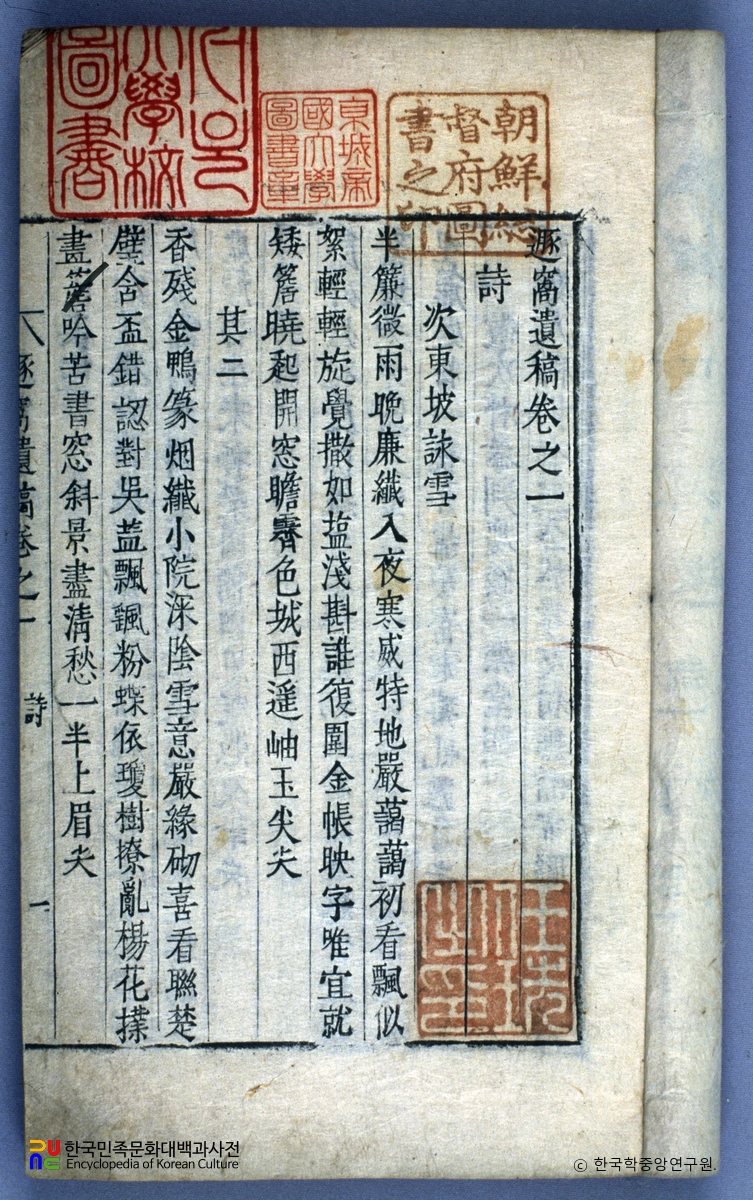 朝鮮總
督府圖
書之印
京城帝
國大學
圖書章
大學校
圖書
遯窩遺稿卷之一
詩
次東坡詠雪
半簾微雨晩廉纖入夜寒威特地嚴藹藹初看飄似
絮輕輕旋覺撒如塩淺斟誰復圍金帳映字唯宜就
矮簷曉起開窓瞻霽色城西遥岫玉尖尖
其二
香殘金鴨篆烟纖小院深陰雪意嚴緣砌喜看聯楚
璧含盃錯認對吳盐飄飄粉蝶依瓊樹撩亂楊花撲
畫簷吟苦書窓斜景盡淸愁一半上眉尖
遯窩遺稿卷之一 詩 一
한국민족문화대백과사전
Encyclopedia of Korean Culture
ⓒ 한국학중앙연구원.